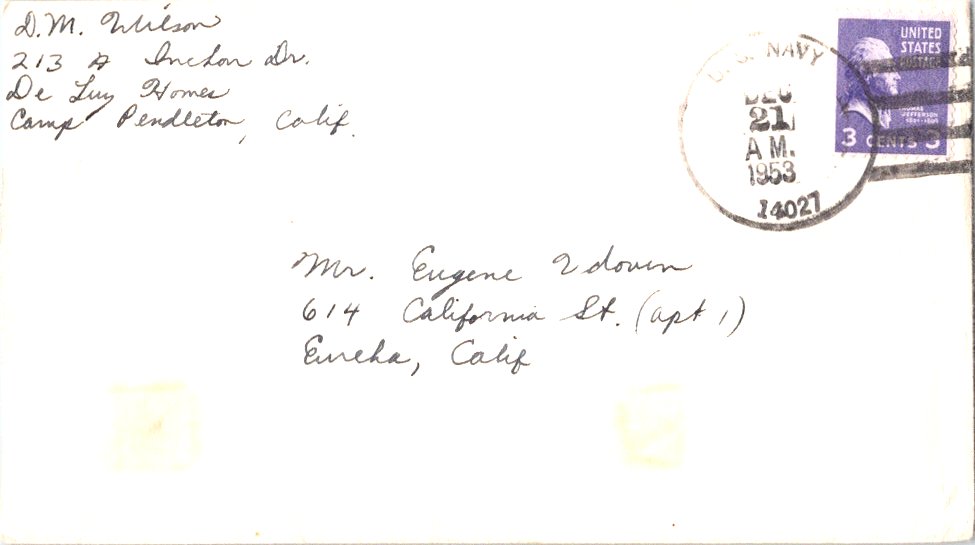 D.M. Wilson
213 A Inchon Dr.
De Luz Homes
Camp Pendleton, Calif.
U.S. NAVY
DEC
21
A M.
1953
14027
UNITED
STATES
POSTAGE
THOMAS
JEFFERSON
3 CENTS 3
Mr. Eugene Udovin
614 California St. (apt 1)
Eureka, Calif